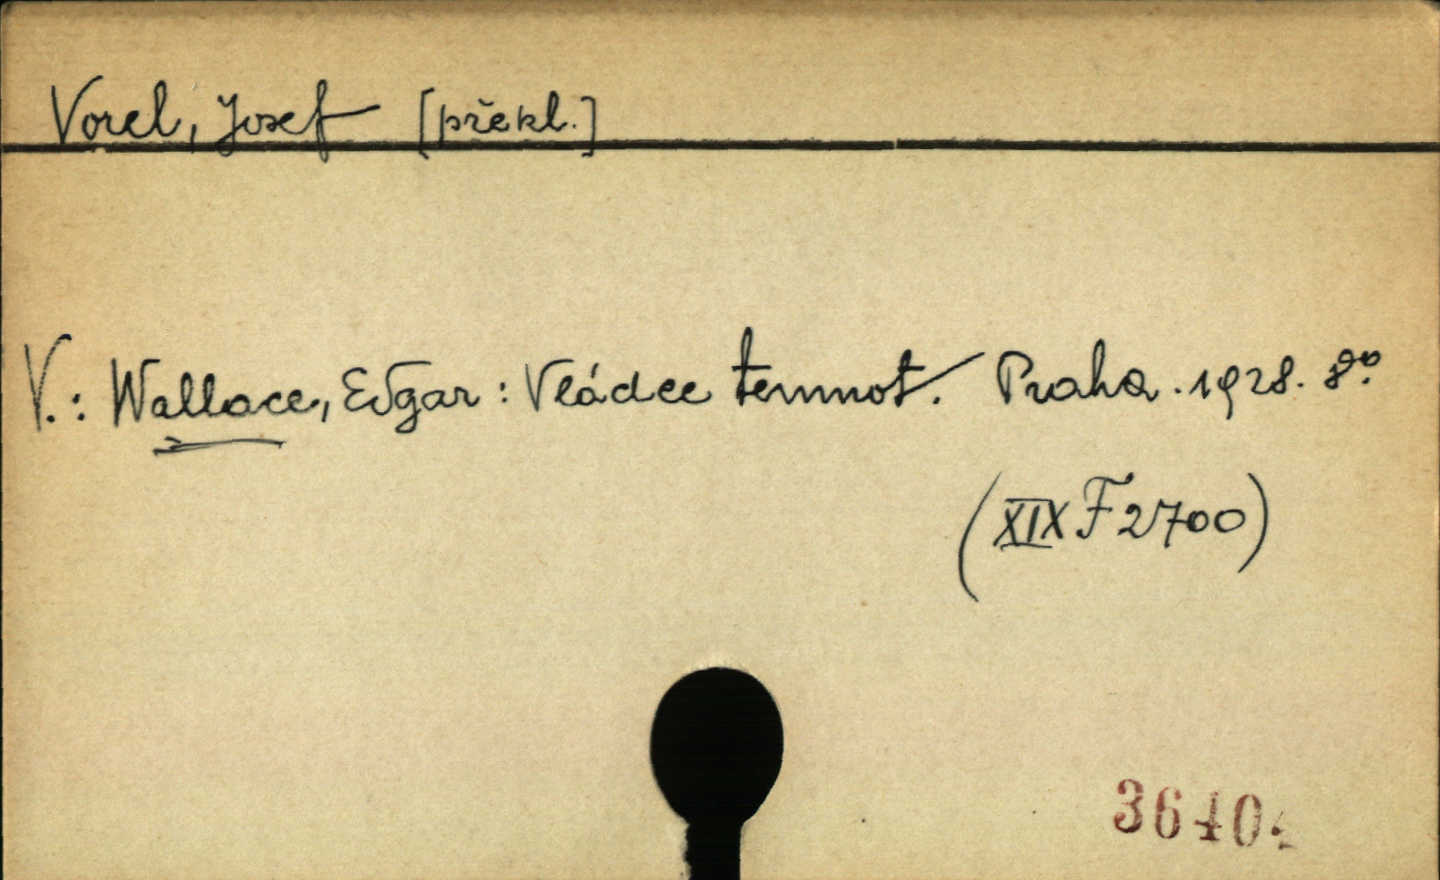 Vorel, Josef [překl.]
V.: Wallace, Edgar: Vládce temnot. Praha. 1928. 8º.
(XIX F 2700)